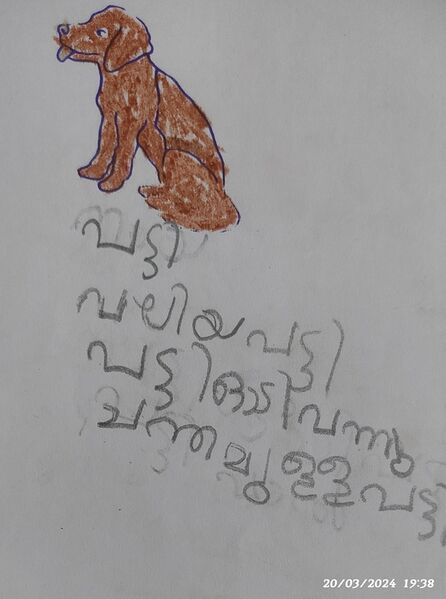 പട്ടി
വലിയ പട്ടി
പട്ടി ഓടി വന്നു
ചന്തമുള്ള പട്ടി
20/03/2024 19:38